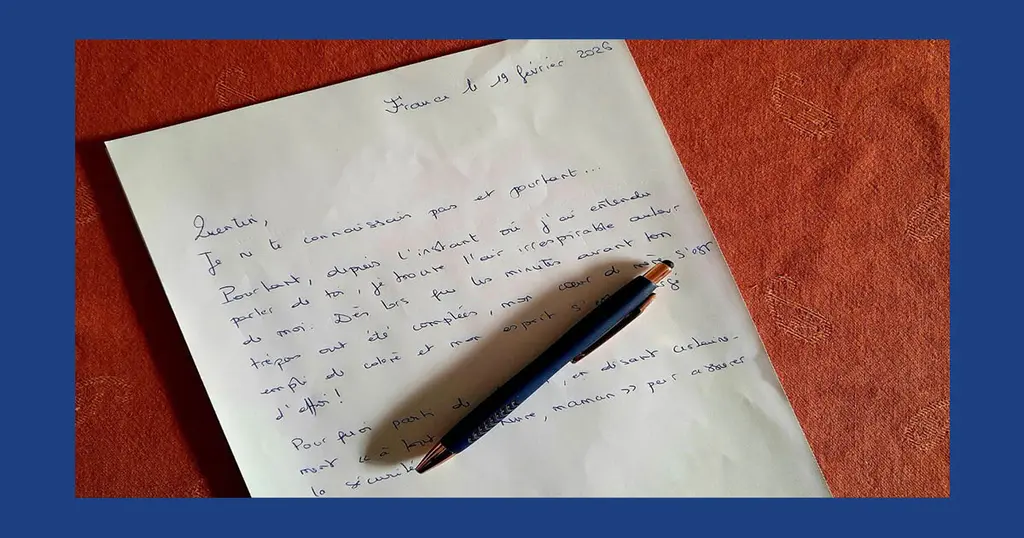 France le 19 février 2026
Quentin,
Je ne te connaissais pas et pourtant...
Pourtant, depuis l'instant où j'ai entendu
parler de toi, je trouve l'air irrespirable autour
de moi. Dès lors que les minutes avant ton
trépas ont été comptées, mon cœur de mère s'est
empli de colère et mon esprit
d'effroi!
parti de , en disant certaine-
ment « à tout heure, maman » pour assurer
la sécurité